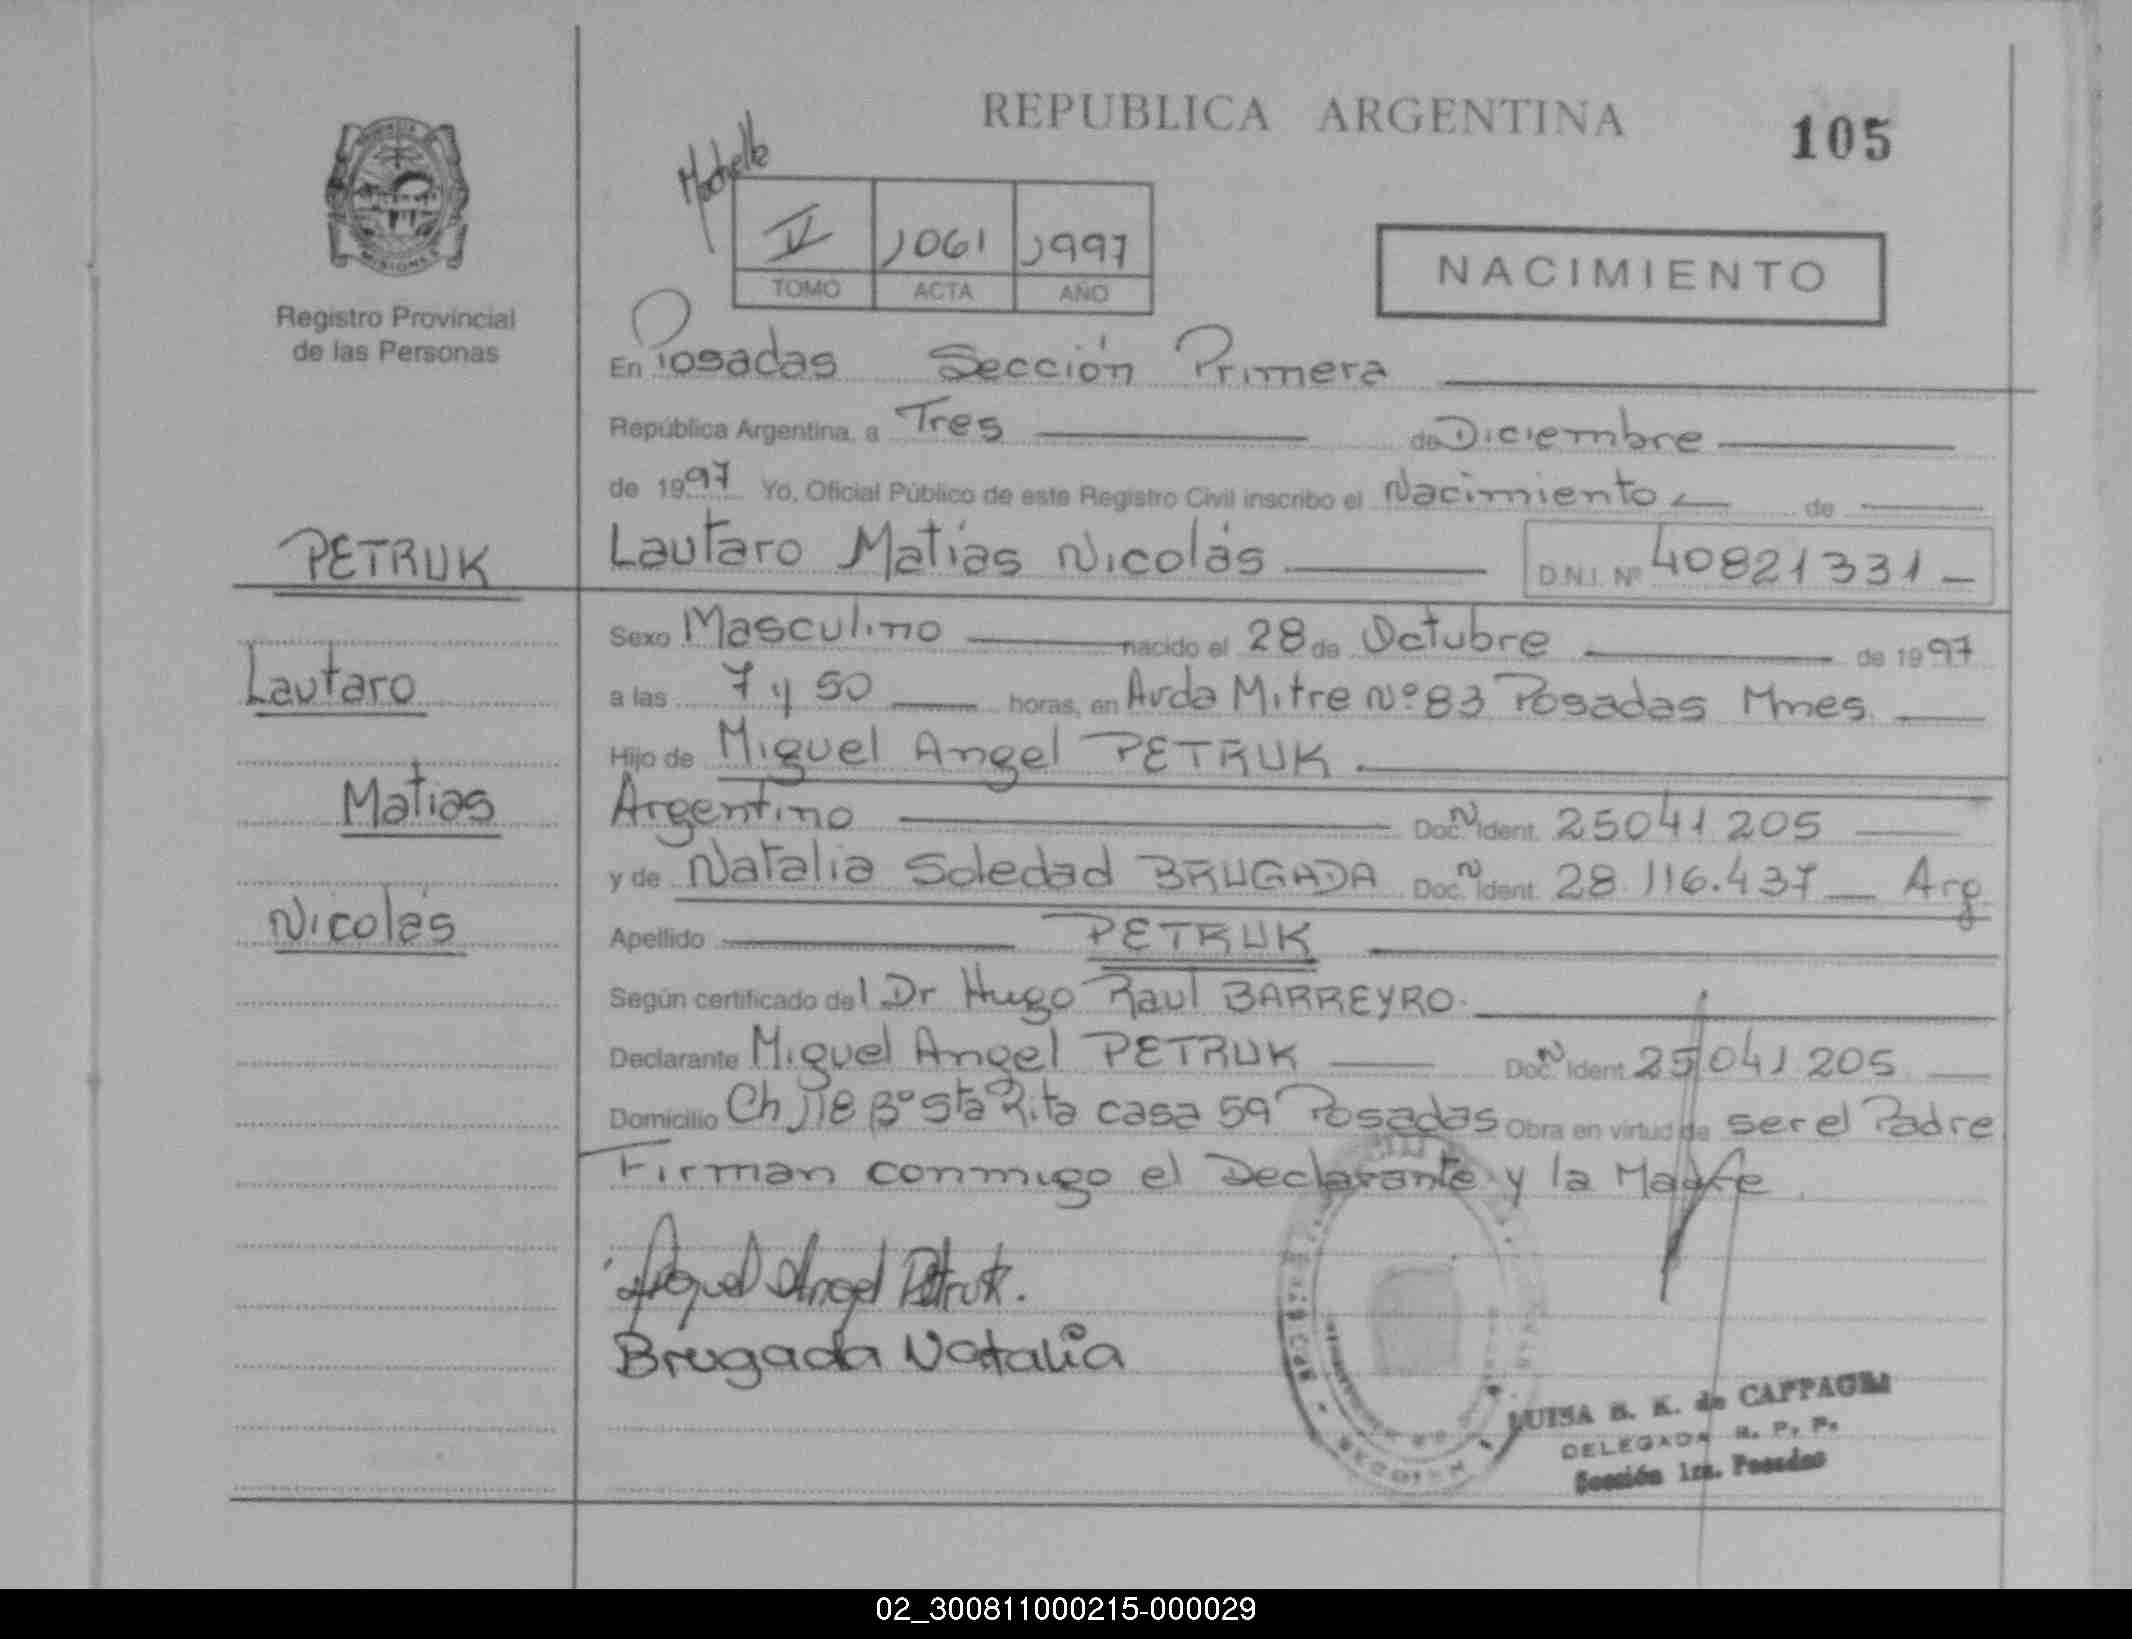 REPUBLICA ARGENTINA
105
V 1061 1997
TOMO ACTA AÑO
NACIMIENTO
MISIONES
Registro Provincial
de las Personas
En Posadas Sección Primera
República Argentina, a Tres de Diciembre
de 1997 Yo, Oficial Público de este Registro Civil inscribo el Nacimiento de
PETRUK
Lautaro Matías Nicolás D.N.I. Nº 40821331
Sexo Masculino nacido el 28 de Octubre de 1997
Lautaro
a las 7 y 50 horas, en Avda Mitre Nº 83 Posadas Mnes.
Hijo de Miguel Angel PETRUK
Matias
Argentino Doc. N Ident. 25041205
y de Natalia Soledad BRUGADA Doc. N Ident. 28.116.437 Arg.
Nicolás
Apellido PETRUK
Según certificado del Dr Hugo Raul BARREYRO
Declarante Miguel Angel PETRUK Doc. N Ident. 25041205
Domicilio Ch 118 Bº Sta Rita casa 59 Posadas Obra en virtud de ser el Padre
Firman conmigo el Declarante y la Madre
Miguel Angel Petruk.
Brugada Natalia
LUISA K. de
DELEGADA R. P. P.
Sección 1ra. Posadas
02_300811000215-000029